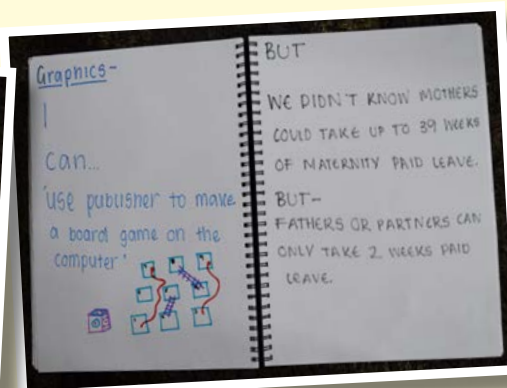 Graphics-
I
can...
'use publisher to make
a board game on the
computer'
BUT
WE DIDN'T KNOW MOTHERS
COULD TAKE UP TO 39 WEEKS
OF MATERNITY PAID LEAVE.
BUT-
FATHERS OR PARTNERS CAN
ONLY TAKE 2 WEEKS PAID
LEAVE.